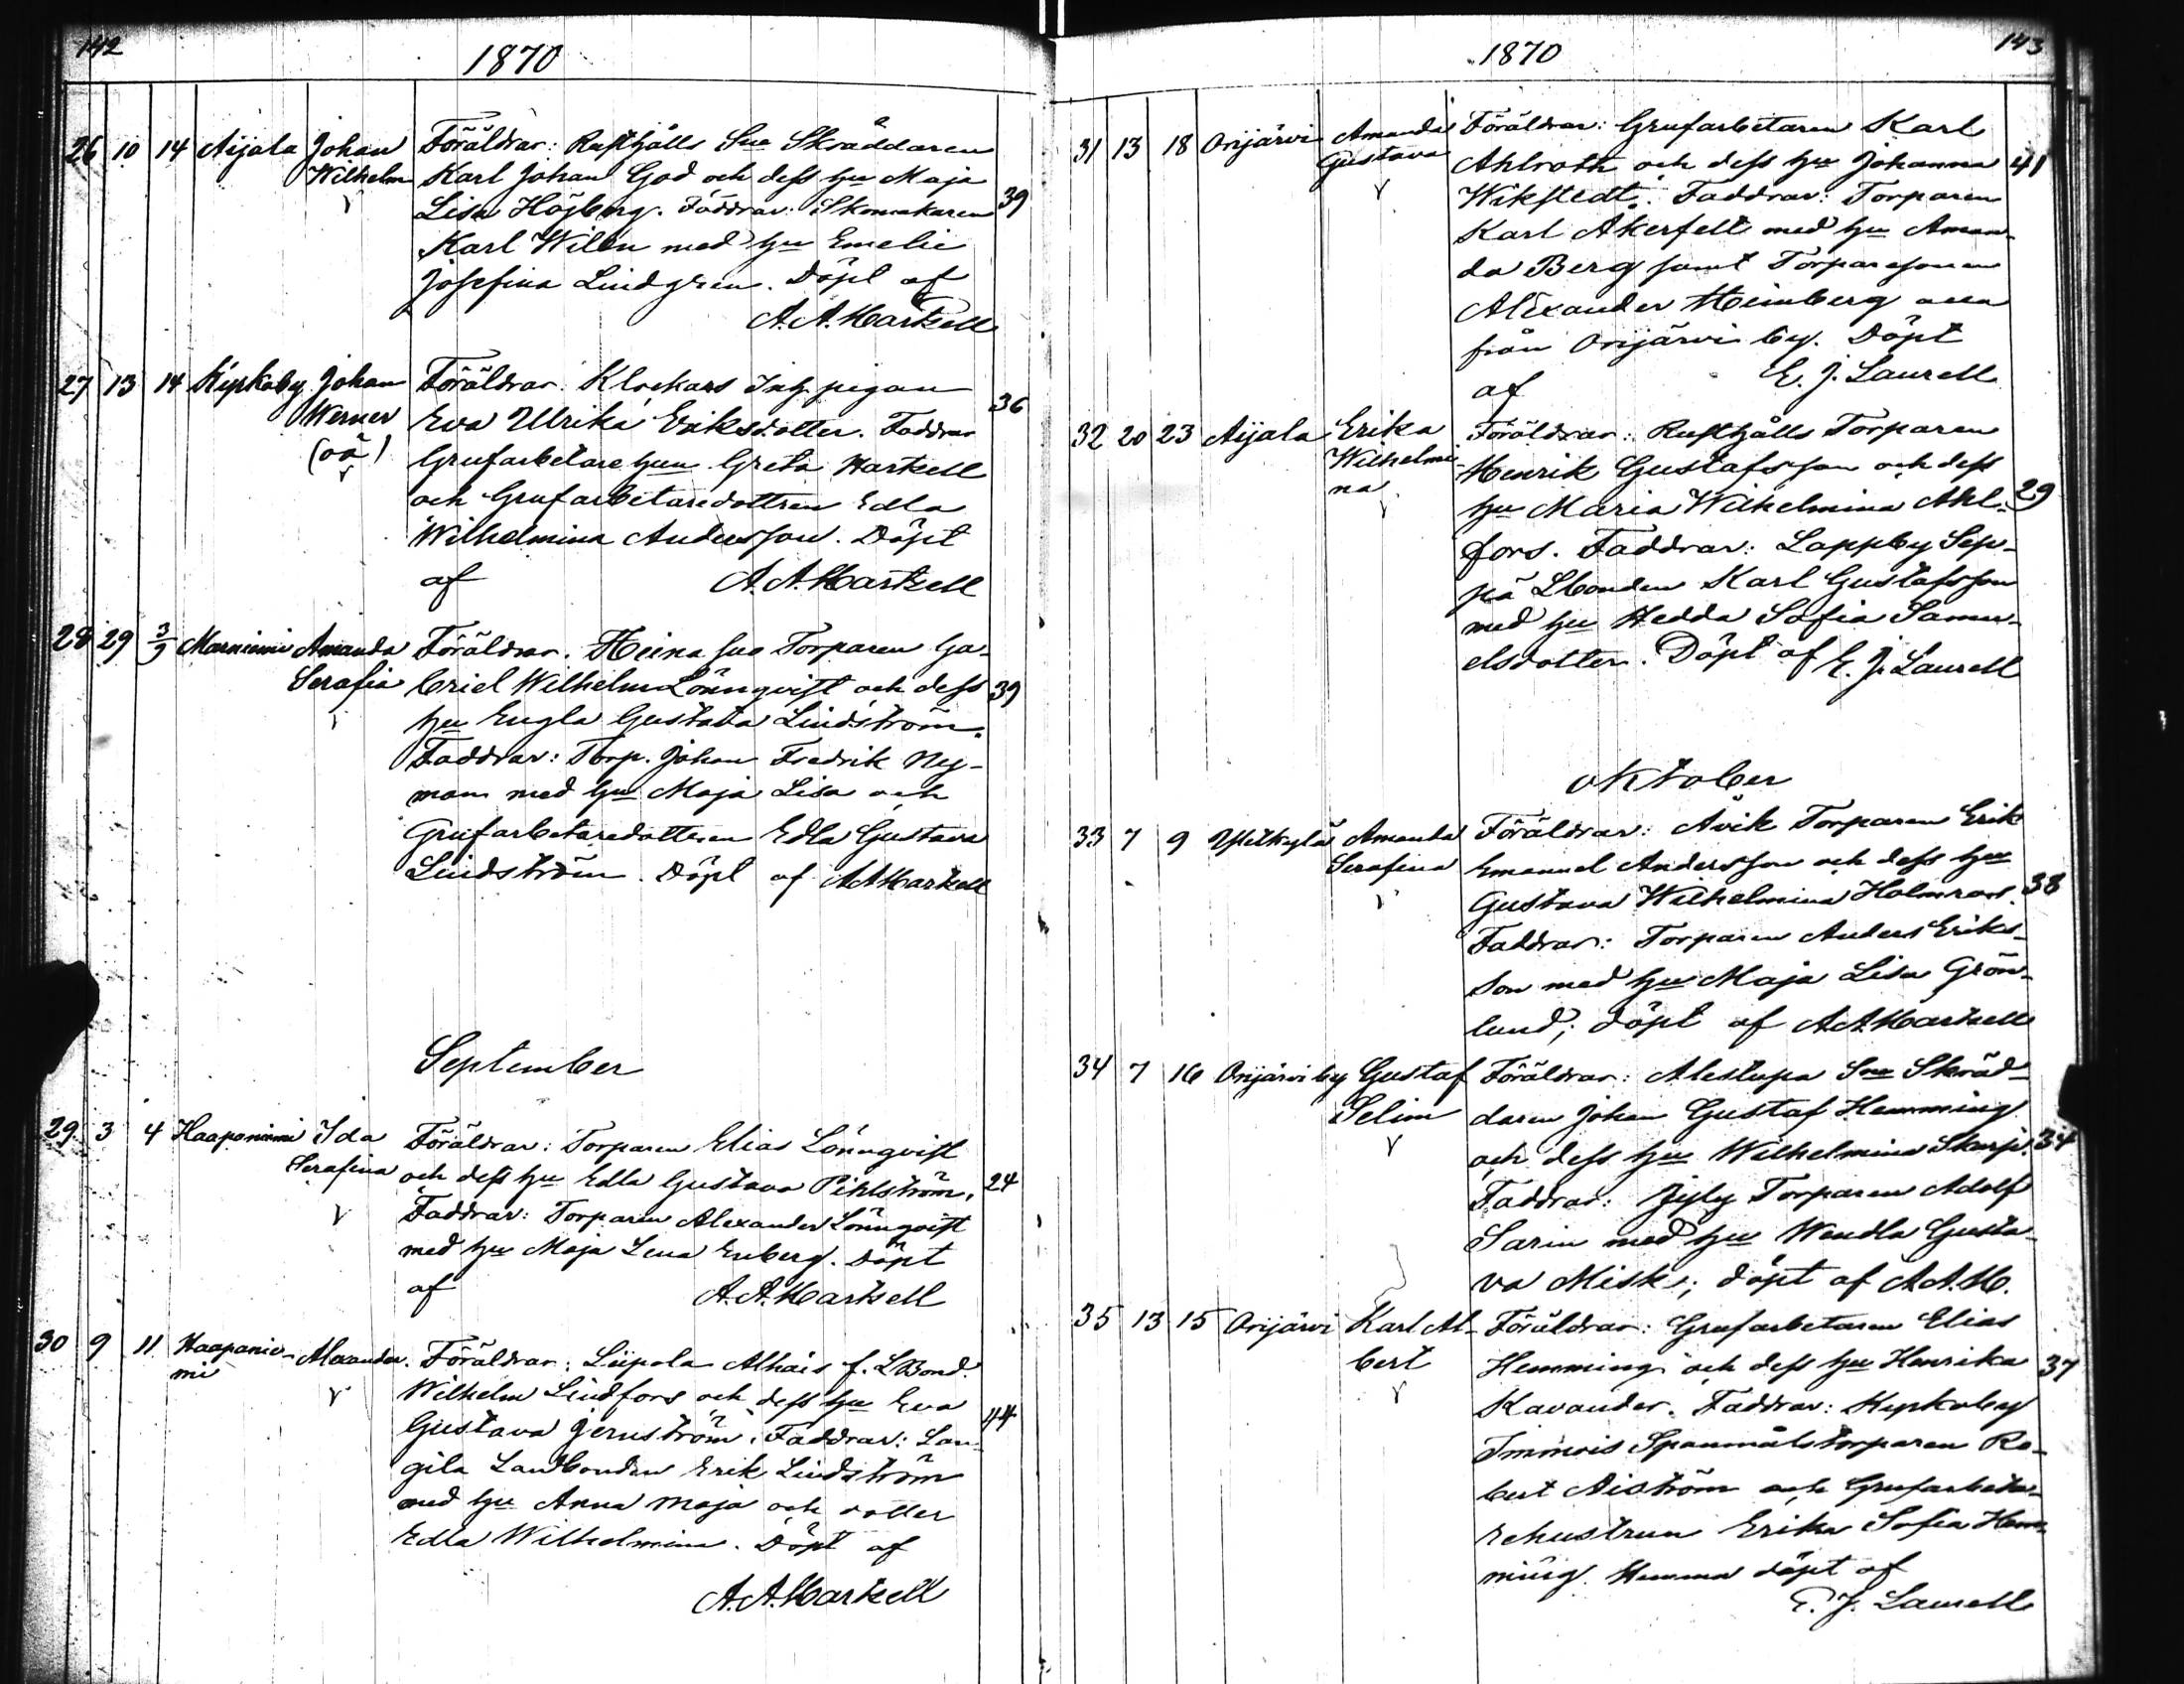 142
1870
26 10 14 Aijala Johan Föräldrar: Rusthålls Sne Skräddaren
Wilhelm Karl Johan God och dess hu Maja
Lisa Högberg. Faddrar: Skomakaren 39
Karl Wilén med hu Emelie
Josefina Lindgren. Döpt af
A. A. Hartzell
27 13 14 Kyrkoby Johan Föräldrar: Klockars Inh. pigan
Werner Eva Ulrika Eriksdotter. Faddrar 36
(oä) Grufarbetare hun Greta Hartzell
och Grufarbetaredottren Edla
Wilhelmina Andersson. Döpt
af A. A. Hartzell
28 29 3/9 Marniemi Amanda Föräldrar. Heina Torparen Ga-
Serafia briel Wilhelm Lönnqvist och dess 39
hu Engla Gustava Lindström.
Faddrar: Torp. Johan Fredrik Ny-
man med hu Maja Lisa och
Grufarbetaredottren Edla Gustava
Lindström. Döpt af A A Hartzell
September
29 3 4 Haaponiemi Ida Föräldrar: Torparen Elias Lönnqvist
Serafina och dess hu Edla Gustava Pihlström. 24
Faddrar: Torparen Alexander Lönnqvist
med hu Maja Lena Enberg. Döpt
af A. A. Hartzell
30 9 11 Haapanie- Alexander. Föräldrar: Liipola f. L Bond.
mi Wilhelm Lindfors och dess hu Eva
Gustava Jernström. Faddrar: Lau- 44
gila Landbonden Erik Lindström
med hu Anna Maja och dotter
Edla Wilhelmina. Döpt af
A. A. Hartzell
143
1870
31 13 18 Orijärvi Amanda Föräldrar: Grufarbetaren Karl
Gustava Ahlroth och dess hu Johanna 41
Wikstedt. Faddrar: Torparen
Karl Åkerfelt med hu Aman-
da Berg samt Torparesonen
Alexander Heimberg alla
från Orijärvi by. Döpt
af E. J. Laurell
32 20 23 Aijala Erika Föräldrar: Rusthålls Torparen
Wilhelmi- Henrik Gustafsson och dess
na hu Maria Wilhelmina Ahl- 29
fors. Faddrar: Lappby Sep-
pä Lbonden Karl Gustafsson
med hu Hedda Sofia Samu-
elsdotter. Döpt af E. J. Laurell
Oktober
33 7 9 Amanda Föräldrar: Åvik Torparen Erik
Serafina Emanuel Andersson och dess hu
Gustava Wilhelmina Holmroos. 38
Faddrar: Torparen Anders Eriks-
son med hu Maja Lisa Grön-
lund; döpt af A A Hartzell
34 7 16 Orijärvi by Gustaf Föräldrar: Alestupa Sne Skräd-
Selim daren Johan Gustaf Hemming
och dess hu Wilhelmina Skarp. 34
Faddrar: Jyly Torparen Adolf
Sarin med hu Wendla Gusta-
va Misk; döpt af A. A. H.
35 13 15 Orijärvi Karl Al- Föräldrar: Grufarbetaren Elias
bert Hemming och dess hu Henrika 37
Kavander. Faddrar: Kyrkoby
Immois Spanmåls torparen Ro-
bert Aiström och Grufarbeta-
rehustrun Erika Sofia Hem-
ming. Hemma döpt af
E. J. Laurell